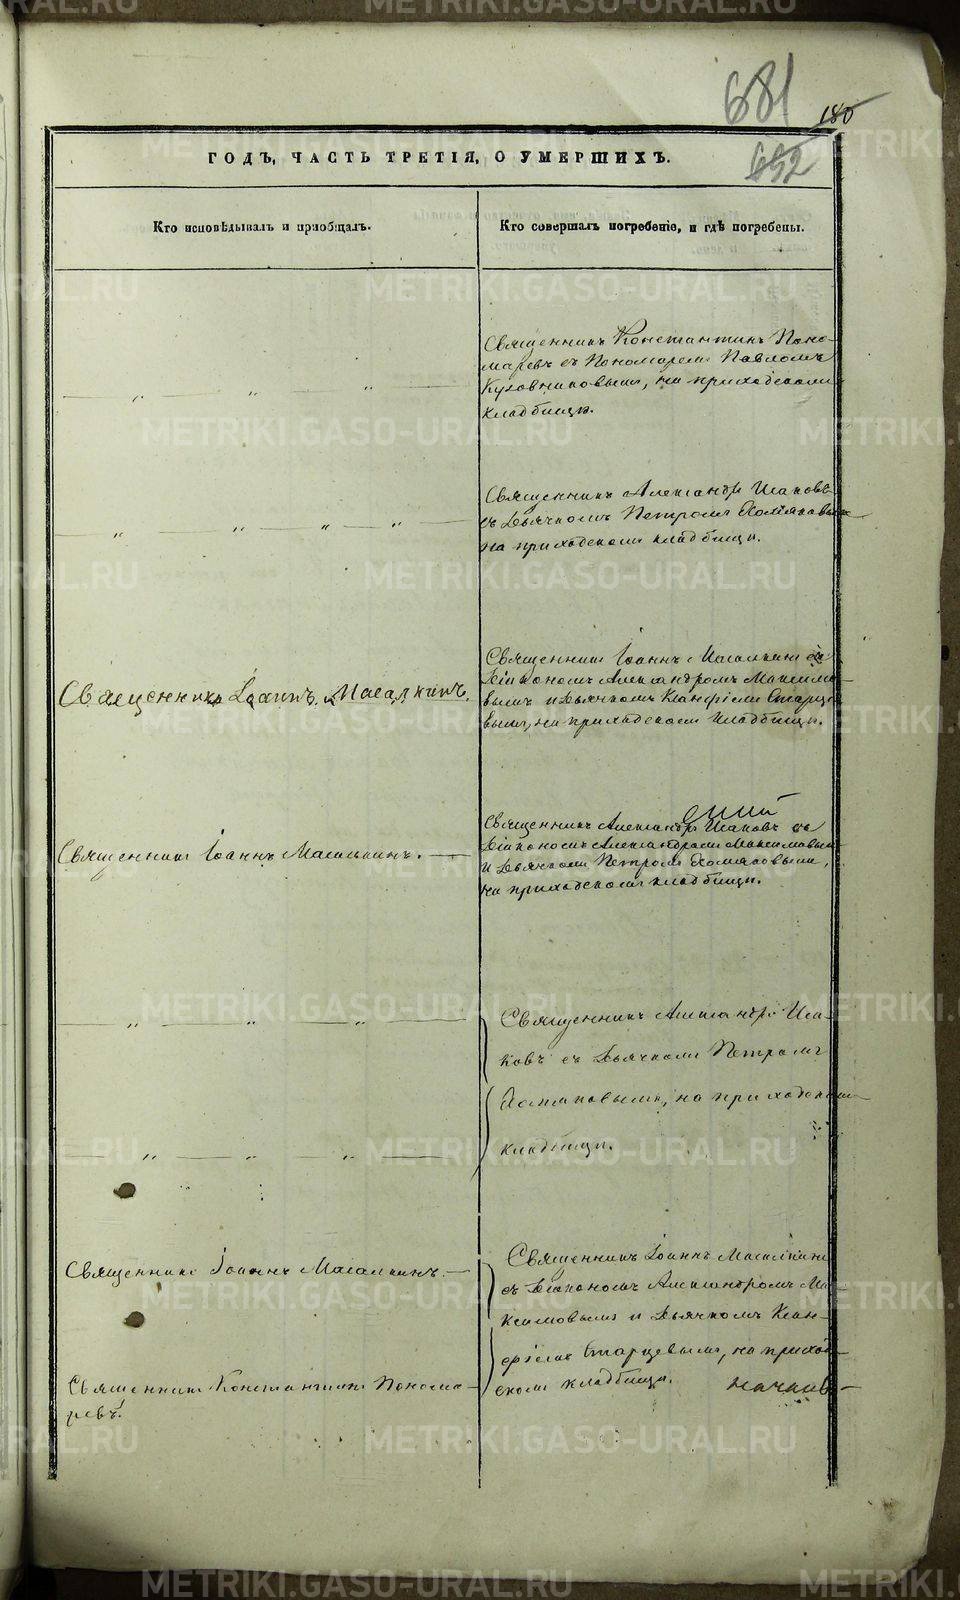 681
180
652
ГОДЪ, ЧАСТЬ ТРЕТІЯ, О УМЕРШИХЪ.
Кто исповѣдывалъ и приобщалъ.
Кто совершалъ погребеніе, и гдѣ погребены.
Священникъ Константинъ Поно-
маревъ съ Пономаремъ Павломъ
на приходскомъ
кладбищѣ.
Священникъ Александръ Исаковъ
съ Дьячкомъ Петромъ Хомяковымъ
на приходскомъ кладбищѣ.
Священникъ Іоаннъ Масалкинъ.
Священникъ Іоаннъ Масалкинъ съ
Діакономъ Александромъ Максимо-
вымъ и Дьячкомъ Ксанфіемъ Старце-
вымъ, на приходскомъ кладбищѣ.
Священникъ Іоаннъ Масалкинъ.
Священникъ Александръ Исаковъ съ
Діакономъ Александромъ Максимовымъ
и Дьячкомъ Петромъ Хомяковымъ,
на приходскомъ кладбищѣ.
Священникъ Александръ Иса-
ковъ съ Дьячкомъ Петромъ
Хомяковымъ, на приходскомъ
кладбищѣ.
Священникъ Іоаннъ Масалкинъ.
Священникъ Іоаннъ Масалкинъ
съ Діакономъ Александромъ Ма-
ксимовымъ и Дьячкомъ Ксан-
фіемъ Старцевымъ, на приход-
скомъ кладбищѣ.
Священникъ Константинъ Понома-
ревъ.
METRIKI.GASO-URAL.RU